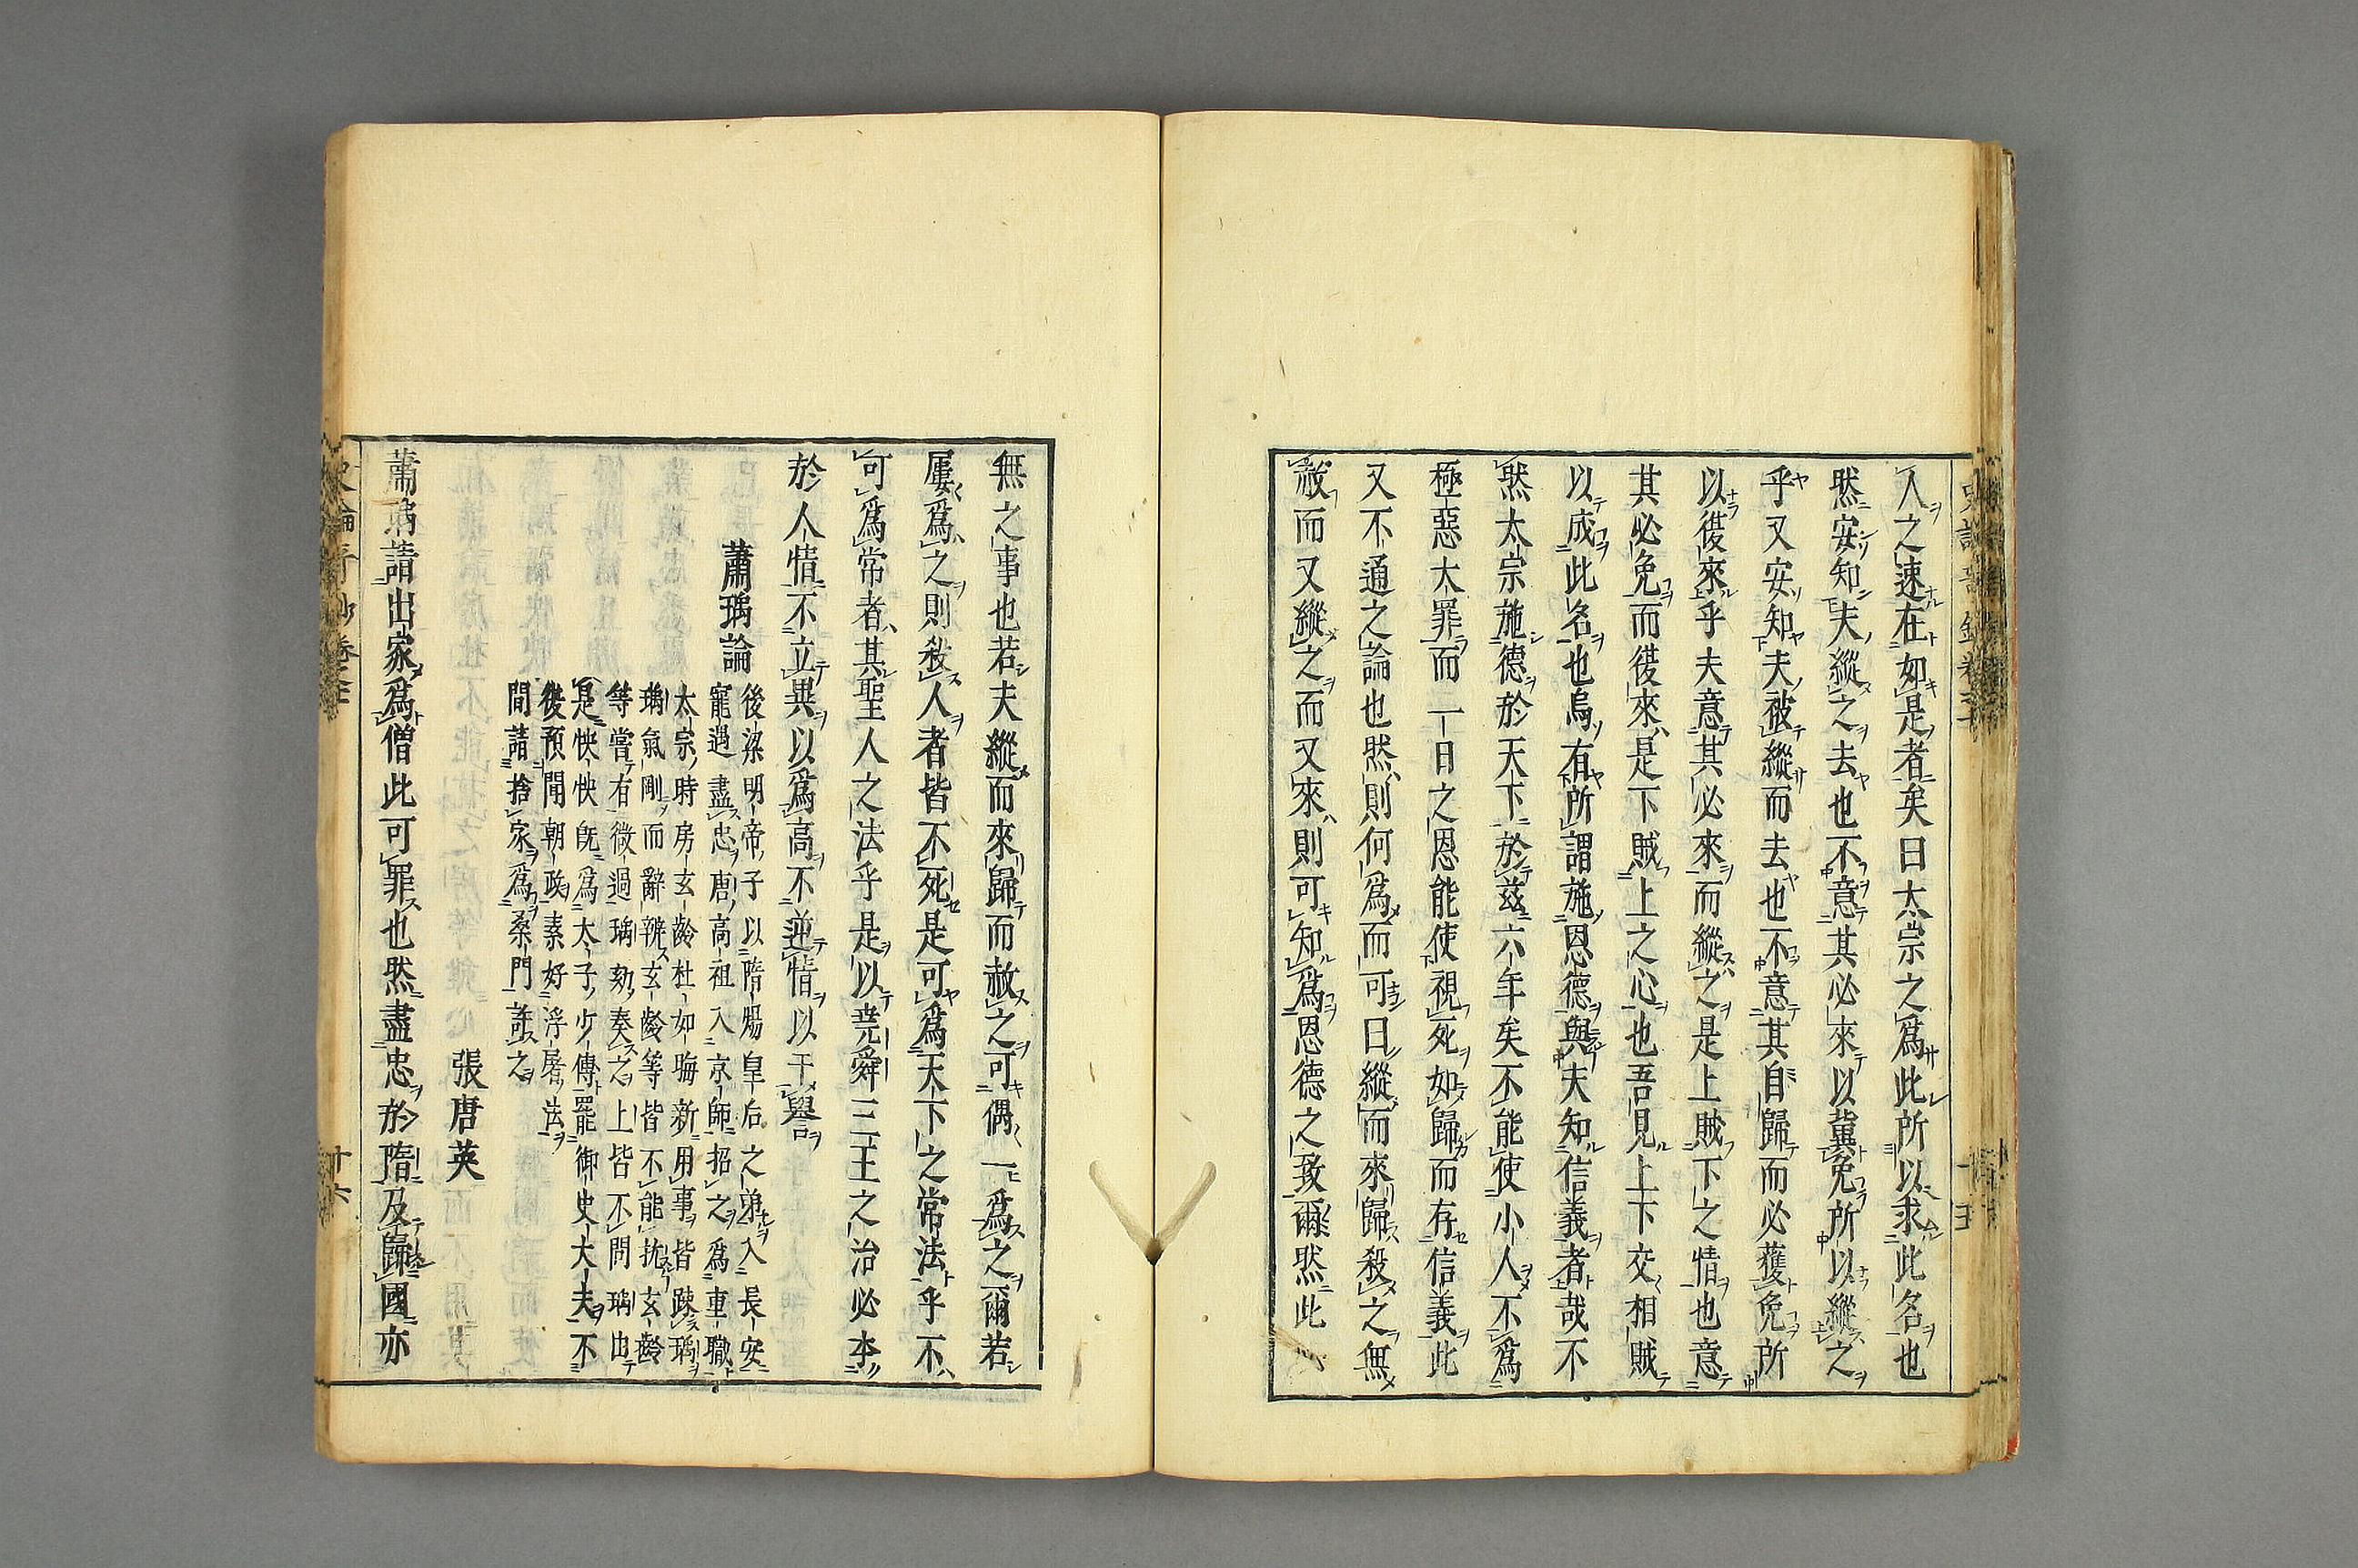 人之速在如是者矣曰太宗之爲此所以求此名也
然安知夫縱之去也不意其必來以冀免所以縱之
乎又安知夫被縱而去也不意其自歸而必獲免所
以復來乎夫意其必來而縱之是上賊下之情也意
其必免而復來是下賊上之心也吾見上下交相賊
以成此名也烏有所謂施恩德與夫知信義者哉不
然太宗施德於天下於兹六年矣不能使小人不爲
極惡大罪而一日之恩能使視死如歸而存信義此
又不通之論也然則何爲而可曰縱而來歸殺之無
赦而又縱之而又來則可知爲恩德之致爾然此
無之事也若夫縱而來歸而赦之可偶一爲之爾若
屢爲之則殺人者皆不死是可爲天下之常法乎不
可爲常者其聖人之法乎是以堯舜三王之治必本
於人情不立異以爲高不逆情以干譽
蕭瑀論
後梁明帝子以隋煬皇后之弟入長安
寵遇盡忠唐高祖入京師招之爲重職
太宗時房玄齡杜如晦新用事皆踈瑀
瑀氣剛而辭辨玄齡等皆不能抗玄齡
等嘗有微過瑀劾奏之上皆不問瑀由
是怏怏既爲太子少傳罷御史大夫不
復預聞朝政素好浮屠法
間請捨家爲桑門許之
張唐英
蕭瑀請出家爲僧此可罪也然盡忠於隋及歸國亦
十六